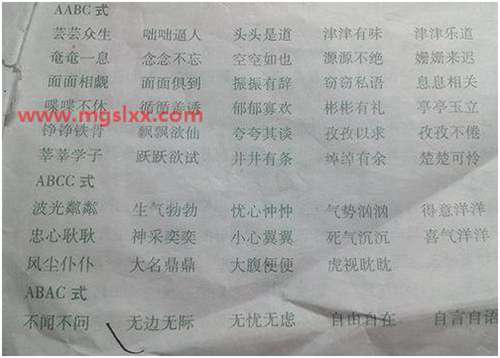 AABC 式
芸芸众生 咄咄逼人 头头是道 津津有味 津津乐道
奄奄一息 念念不忘 空空如也 源源不绝 姗姗来迟
面面相觑 面面俱到 振振有辞 窃窃私语 息息相关
喋喋不休 循循善诱 郁郁寡欢 彬彬有礼 亭亭玉立
www.mgslxx.com
铮铮铁骨 飘飘欲仙 夸夸其谈 孜孜以求 孜孜不倦
莘莘学子 跃跃欲试 井井有条 绰绰有余 楚楚可怜
ABCC 式
波光粼粼 生气勃勃 忧心忡忡 气势汹汹 得意洋洋
忠心耿耿 神采奕奕 小心翼翼 死气沉沉 喜气洋洋
风尘仆仆 大名鼎鼎 大腹便便 虎视眈眈
ABAC 式
不闻不问 无边无际 无忧无虑 自由自在 自言自语